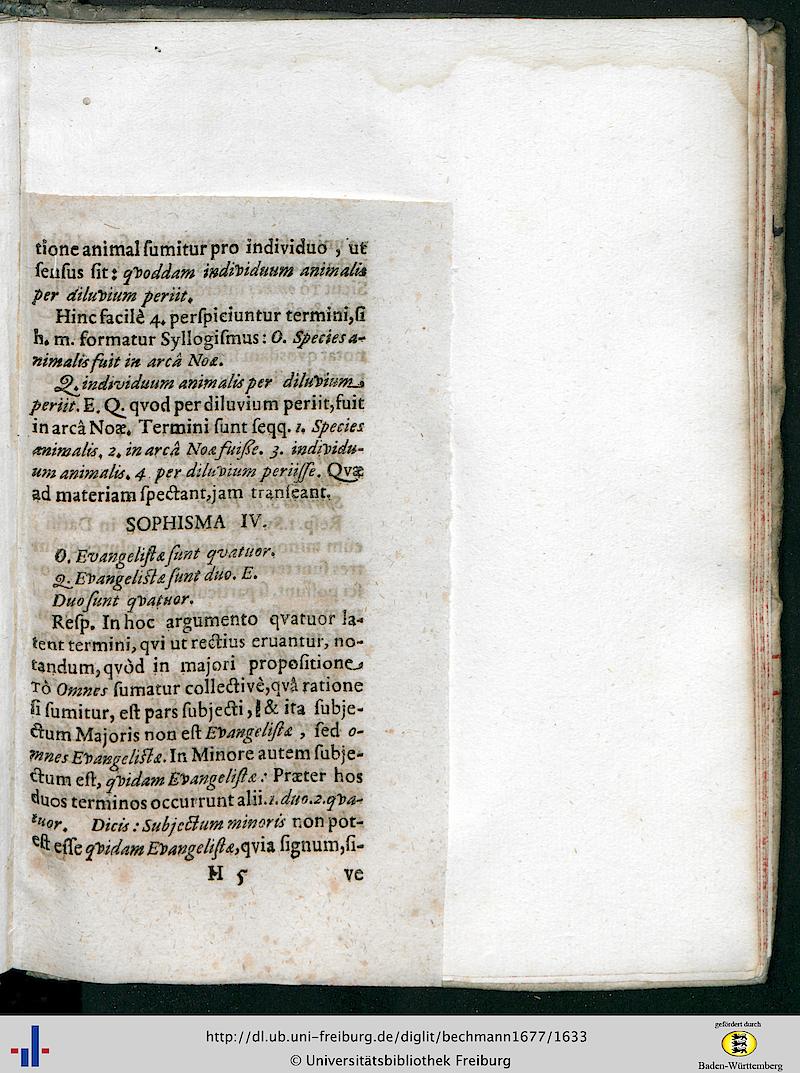 tione animal ſumitur pro individuo , ut
ſenſus ſit: qvoddam individuum animalis
per diluvium periit.
Hinc facilè 4. perſpiciuntur termini,ſi
h. m. formatur Syllogiſmus: O. Species a-
nimalis fuit in arcâ Noæ.
Q. individuum animalis per diluvium
periit. E. Q. qvod per diluvium periit,fuit
in arcâ Noæ. Termini ſunt ſeqq. 1. Species
animalis, 2. in arcâ Noæ fuiſſe. 3. individu-
um animalis. 4. per diluvium periiſſe. Qvæ
ad materiam ſpectant,jam tranſeant.
SOPHISMA IV.
O. Evangeliſtæ ſunt qvatuor.
Q. Evangeliſtæ ſunt duo. E.
Duo ſunt qvatuor.
Reſp. In hoc argumento qvatuor la-
tent termini, qvi ut rectius eruantur, no-
tandum, qvòd in majori propoſitione
τὸ Omnes ſumatur collectivè,qvâ ratione
ſi ſumitur, eſt pars ſubjecti , & ita ſubje-
ctum Majoris non eſt Evangeliſtæ , ſed o-
mnes Evangeliſtæ. In Minore autem ſubje-
ctum eſt, qvidam Evangeliſtæ: Præter hos
duos terminos occurrunt alii. 1. duo. 2. qva-
tuor. Dicis: Subjectum minoris non pot-
eſt eſſe qvidam Evangeliſtæ,qvia ſignum,ſi-
H 5 ve
http://dl.ub.uni-freiburg.de/diglit/bechmann1677/1633
© Universitätsbibliothek Freiburg
gefördert durch
Baden-Württemberg